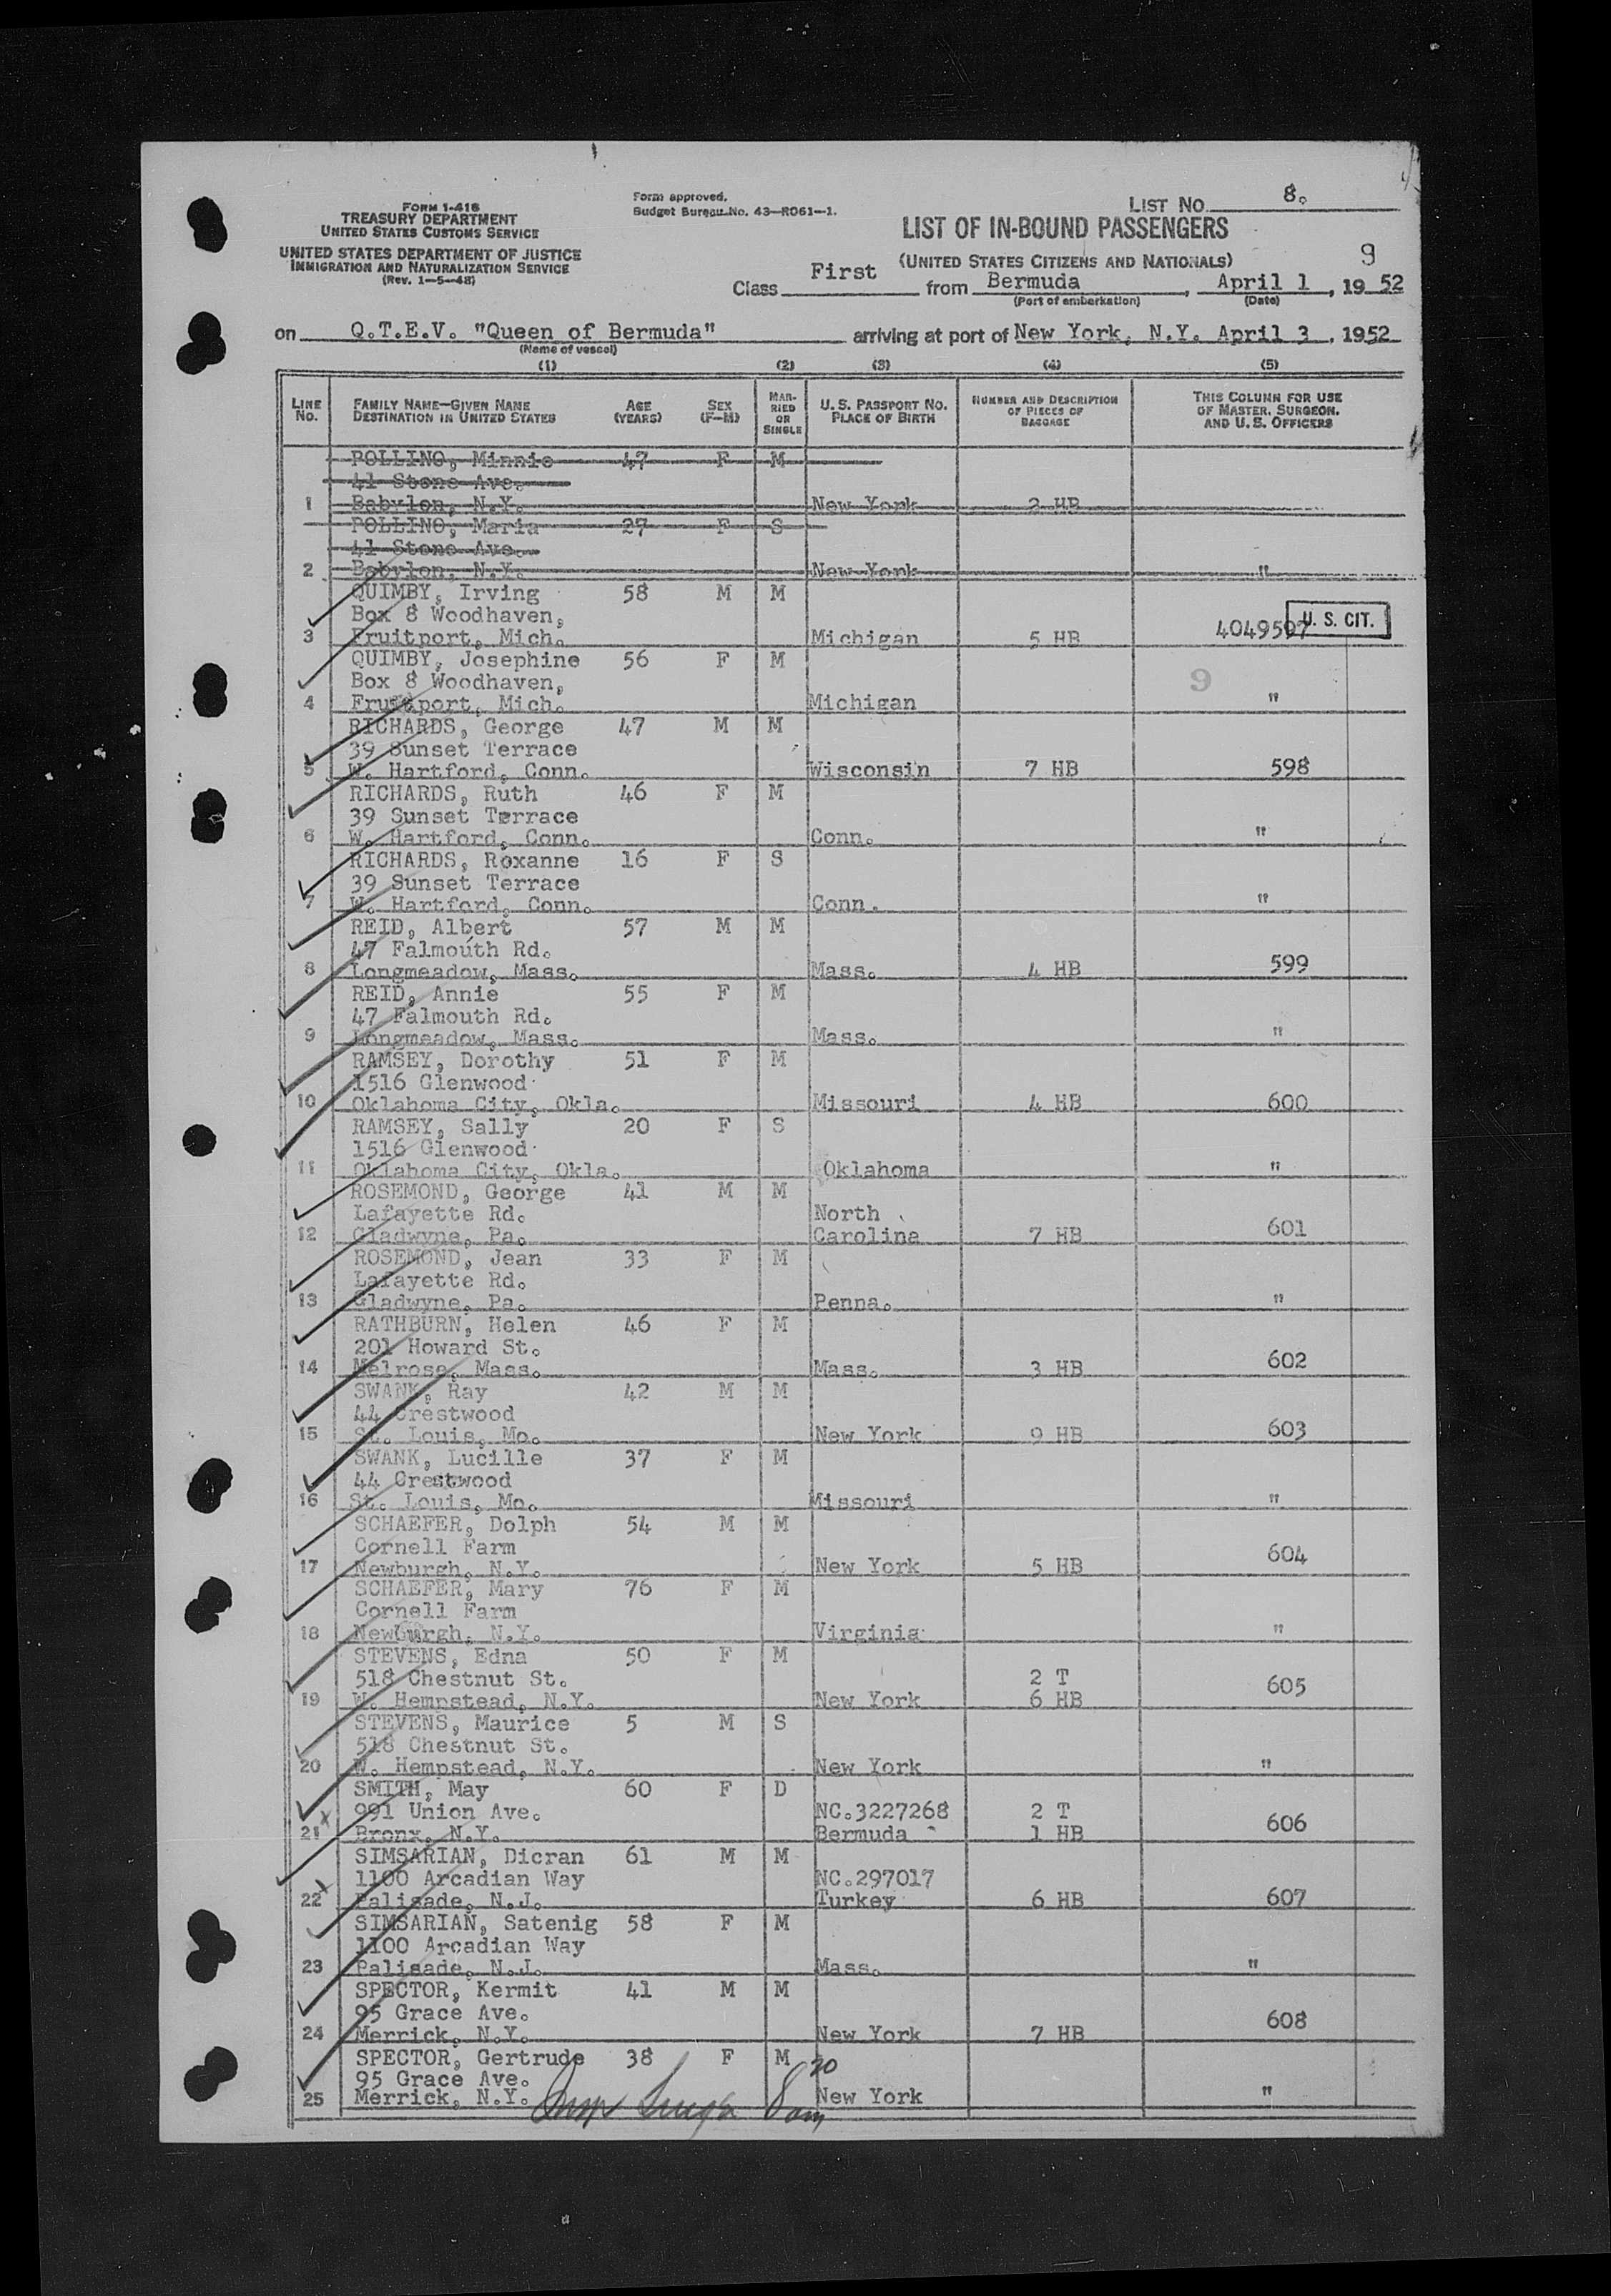 LIST NO. 8.
FORM I-416
TREASURY DEPARTMENT
UNITED STATES CUSTOMS SERVICE
UNITED STATES DEPARTMENT OF JUSTICE
IMMIGRATION AND NATURALIZATION SERVICE
(Rev. 1-5-48)
Form approved.
Budget Bureau No. 43-R061-1.
LIST OF IN-BOUND PASSENGERS
(UNITED STATES CITIZENS AND NATIONALS) 9
Class First from Bermuda, April 1, 1952
(Port of embarkation) (Date)
on Q.T.E.V. "Queen of Bermuda" arriving at port of New York, N.Y. April 3, 1952
(Name of vessel)
(1) (2) (3) (4) (5)
LINE NO. FAMILY NAME—GIVEN NAME DESTINATION IN UNITED STATES AGE (YEARS) SEX (F—M) MARRIED OR SINGLE U.S. PASSPORT NO. PLACE OF BIRTH NUMBER AND DESCRIPTION OF PIECES OF BAGGAGE THIS COLUMN FOR USE OF MASTER, SURGEON, AND U.S. OFFICERS
POLLINO, Minnie 47 F M
41 Stone Ave.
1 Babylon, N.Y. New York 2 HB
POLLINO, Maria 27 F S
41 Stone Ave.
2 Babylon, N.Y. New York "
QUIMBY, Irving 58 M M
Box 8 Woodhaven, U. S. CIT.
3 Fruitport, Mich. Michigan 5 HB 4049597
QUIMBY, Josephine 56 F M
Box 8 Woodhaven, 9
4 Fruitport, Mich. Michigan "
RICHARDS, George 47 M M
39 Sunset Terrace
5 W. Hartford, Conn. Wisconsin 7 HB 598
RICHARDS, Ruth 46 F M
39 Sunset Terrace
6 W. Hartford, Conn. Conn. "
RICHARDS, Roxanne 16 F S
39 Sunset Terrace
7 W. Hartford, Conn. Conn. "
REID, Albert 57 M M
47 Falmouth Rd.
8 Longmeadow, Mass. Mass. 4 HB 599
REID, Annie 55 F M
47 Falmouth Rd.
9 Longmeadow, Mass. Mass. "
RAMSEY, Dorothy 51 F M
1516 Glenwood
10 Oklahoma City, Okla. Missouri 4 HB 600
RAMSEY, Sally 20 F S
1516 Glenwood
11 Oklahoma City, Okla. Oklahoma "
ROSEMOND, George 41 M M
Lafayette Rd. North
12 Gladwyne, Pa. Carolina 7 HB 601
ROSEMOND, Jean 33 F M
Lafayette Rd.
13 Gladwyne, Pa. Penna. "
RATHBURN, Helen 46 F M
201 Howard St.
14 Melrose, Mass. Mass. 3 HB 602
SWANK, Ray 42 M M
44 Crestwood
15 St. Louis, Mo. New York 9 HB 603
SWANK, Lucille 37 F M
44 Crestwood
16 St. Louis, Mo. Missouri "
SCHAEFER, Dolph 54 M M
Cornell Farm
17 Newburgh, N.Y. New York 5 HB 604
SCHAEFER, Mary 76 F M
Cornell Farm
18 Newburgh, N.Y. Virginia "
STEVENS, Edna 50 F M
518 Chestnut St. 2 T
19 W. Hempstead, N.Y. New York 6 HB 605
STEVENS, Maurice 5 M S
518 Chestnut St.
20 W. Hempstead, N.Y. New York "
SMITH, May 60 F D
991 Union Ave. NC.3227268 2 T
21 x Bronx, N.Y. Bermuda 1 HB 606
SIMSARIAN, Dicran 61 M M
1100 Arcadian Way NC.297017
22 x Palisade, N.J. Turkey 6 HB 607
SIMSARIAN, Satenig 58 F M
1100 Arcadian Way
23 Palisade, N.J. Mass. "
SPECTOR, Kermit 41 M M
95 Grace Ave.
24 Merrick, N.Y. New York 7 HB 608
SPECTOR, Gertrude 38 F M
95 Grace Ave.
25 Merrick, N.Y. 8 20 am New York "